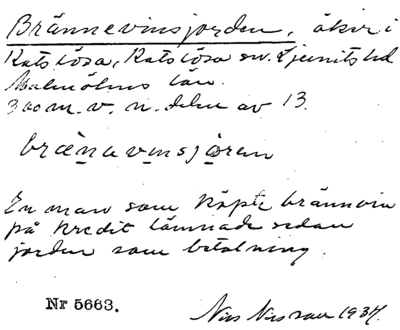 Brännevinsjorden, åker i
Katslösa, Katslösa sn. Ljunits hd
Malmöhus län.
300 m. v. n. delen av 13.
brænavinsjoren
En man som köpte brännvin
på kredit lämnade sedan
jorden som betalning.
Nr 5663.
Nils Nilsson 1934.